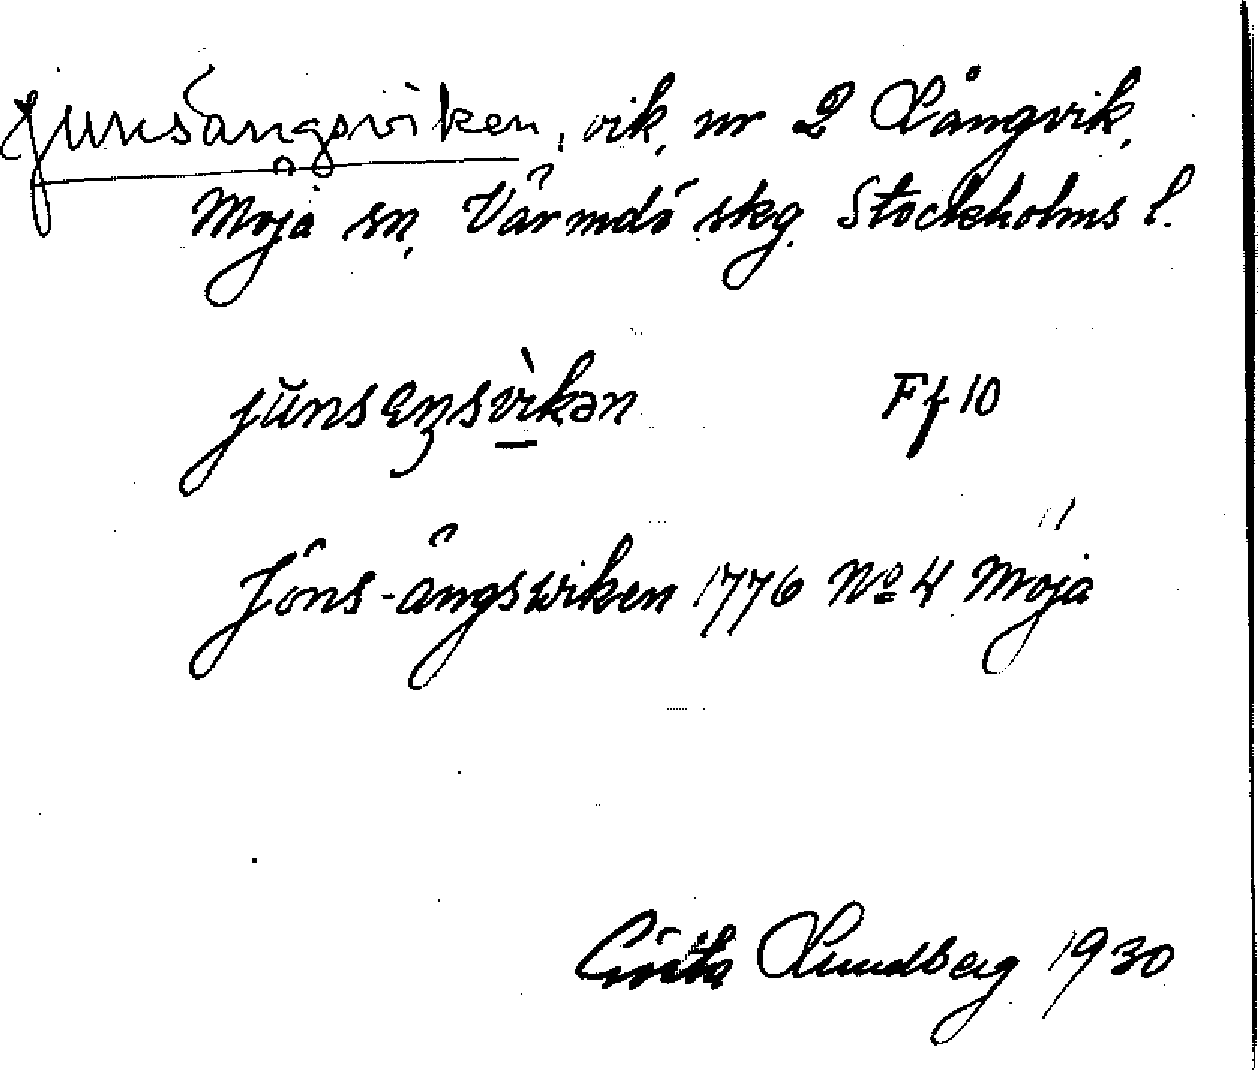 Junsängsviken, vik, nr 2 Långvik,
Möja sn, Värmdö skg. Stockholms l.
jŭnseŋsvìkən Ff 10
Jöns-ängswiken 1776 No 4 Möja
Gösta Lundberg 1930